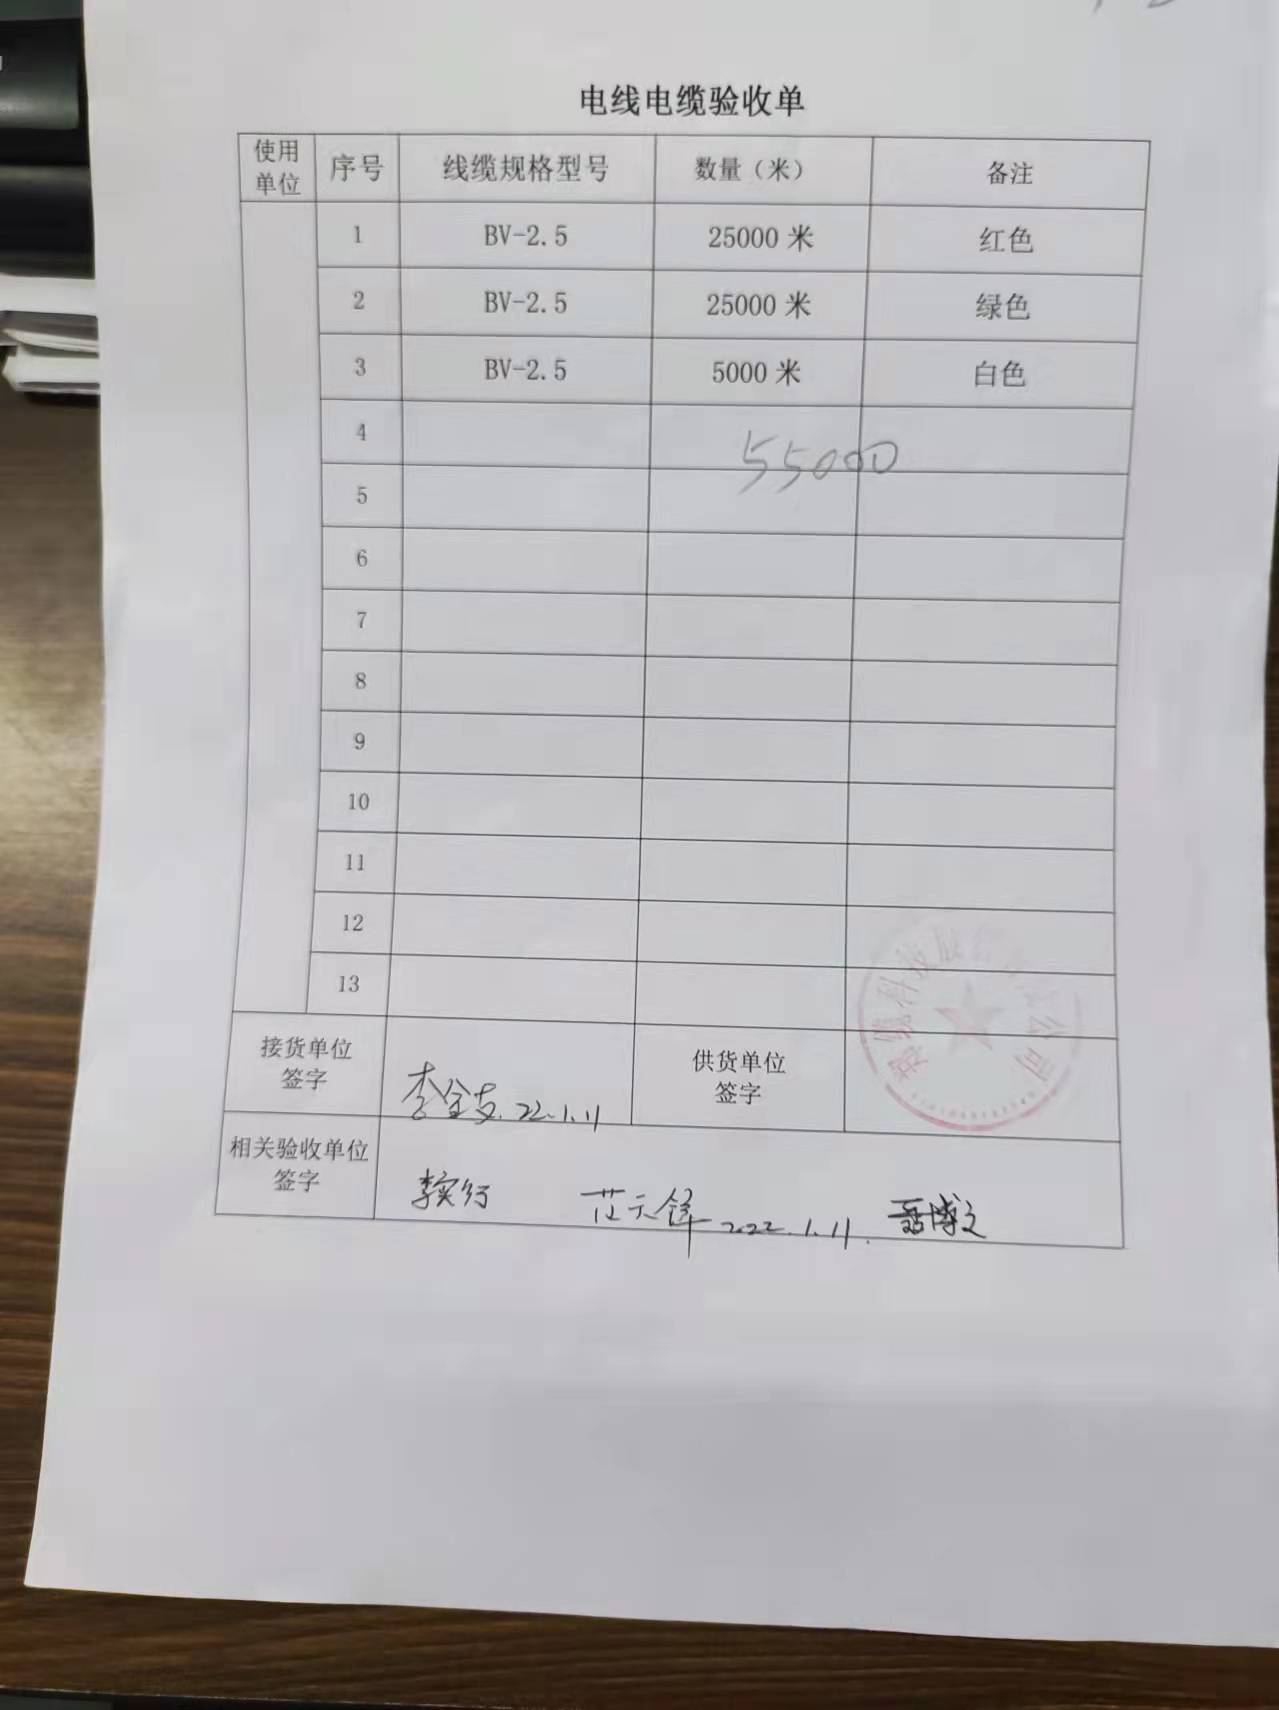 电线电缆验收单
使用单位 序号 线缆规格型号 数量（米） 备注
1 BV-2.5 25000 米 红色
2 BV-2.5 25000 米 绿色
3 BV-2.5 5000 米 白色
4 55000
5
6
7
8
9
10
11
12
13
接货单位
签字
李全友.22.1.11
供货单位
签字
相关验收单位
签字
范天锋 2022.1.11.
科技 公司